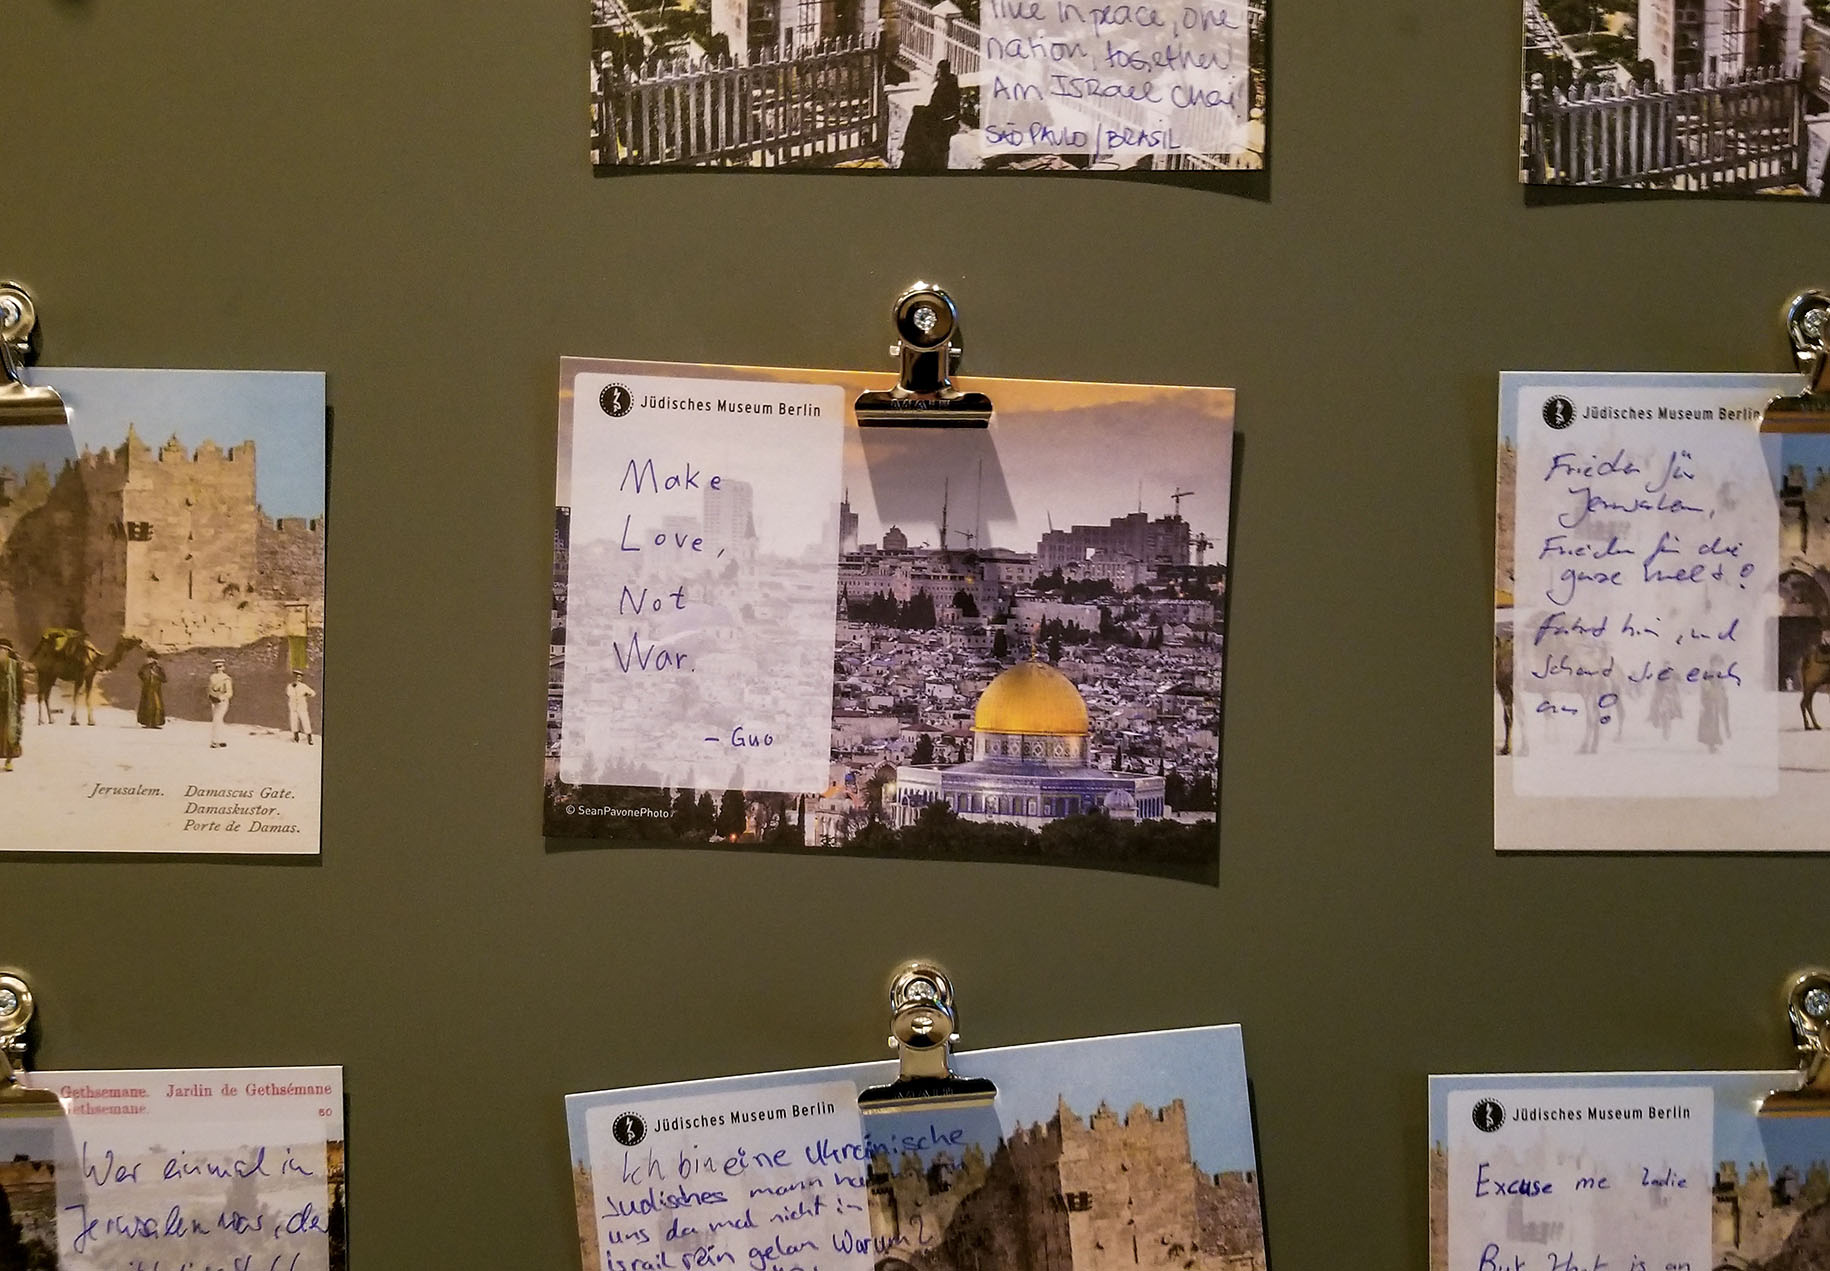 live in peace, one
nation, together!
Am ISRael chai!
SÃO PAULO / BRASIL
Jerusalem. Damascus Gate.
Damaskustor.
Porte de Damas.
Jüdisches Museum Berlin
Make
Love,
Not
War.
- Guo
© SeanPavonePhoto
Jüdisches Museum Berlin
Frieden für
Jerusalem,
Frieden für die
ganze Welt!
Fahrt hin, und
schaut sie euch
an!
Gethsemane. Jardin de Gethsémane
Gethsemane.
60
Wer einmal in
Jerusalem war, der
Jüdisches Museum Berlin
Ich bin eine Ukrainische
Judisches mann
uns da mal nicht in
israil rein gelan Warum?
Jüdisches Museum Berlin
Excuse me
But that is an